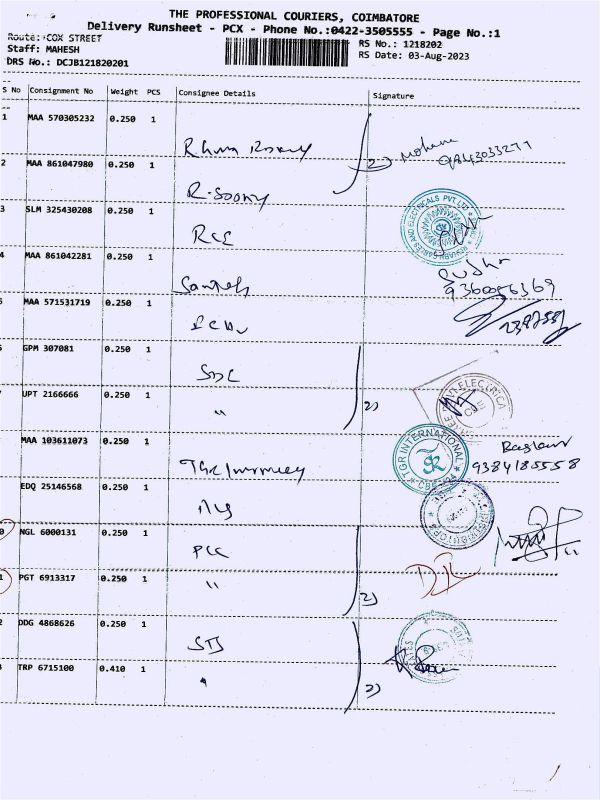 THE PROFESSIONAL COURIERS, COIMBATORE
Delivery Runsheet - PCX - Phone No.:0422-3505555 - Page No.:1
Route: COX STREET
RS No.: 1218202
Staff: MAHESH
RS Date: 03-Aug-2023
DRS No.: DCJB121820201
S No Consignment No Weight PCS Consignee Details Signature
1 MAA 570305232 0.250 1
2) Mohana
9843033277
2 MAA 861047980 0.250 1
R. Soony
3 SLM 325430208 0.250 1
RCE
CABLES AND ELECTRICALS PVT LTD
4 MAA 861042281 0.250 1
Santosh
MAA 571531719 0.250 1
GPM 307081 0.250 1
SDC
UPT 2166666 0.250 1
"
2)
ELECTRICA
MAA 103611073 0.250 1
TGR INTERNATIONAL
CBE
9384185558
EDQ 25146568 0.250 1
0 NGL 6000131 0.250 1
PCC
1 PGT 6913317 0.250 1
"
2)
2 DDG 4868626 0.250 1
STS
TRP 6715100 0.410 1
"
2)